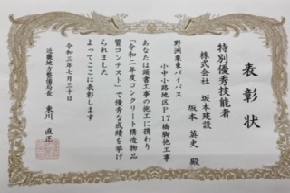 表彰状
特別優秀技能者
株式会社 坂本建設
坂本 英史 殿
野洲栗東バイパス
小中小路地区P17橋脚他工事
あなたは頭書工事の施工に携わり
「令和二年度コンクリート構造物品
質コンテスト」で優秀な成績を挙げ
られました
よってここに表彰します
令和三年七月三十日
近畿地方整備局長
東川 直正